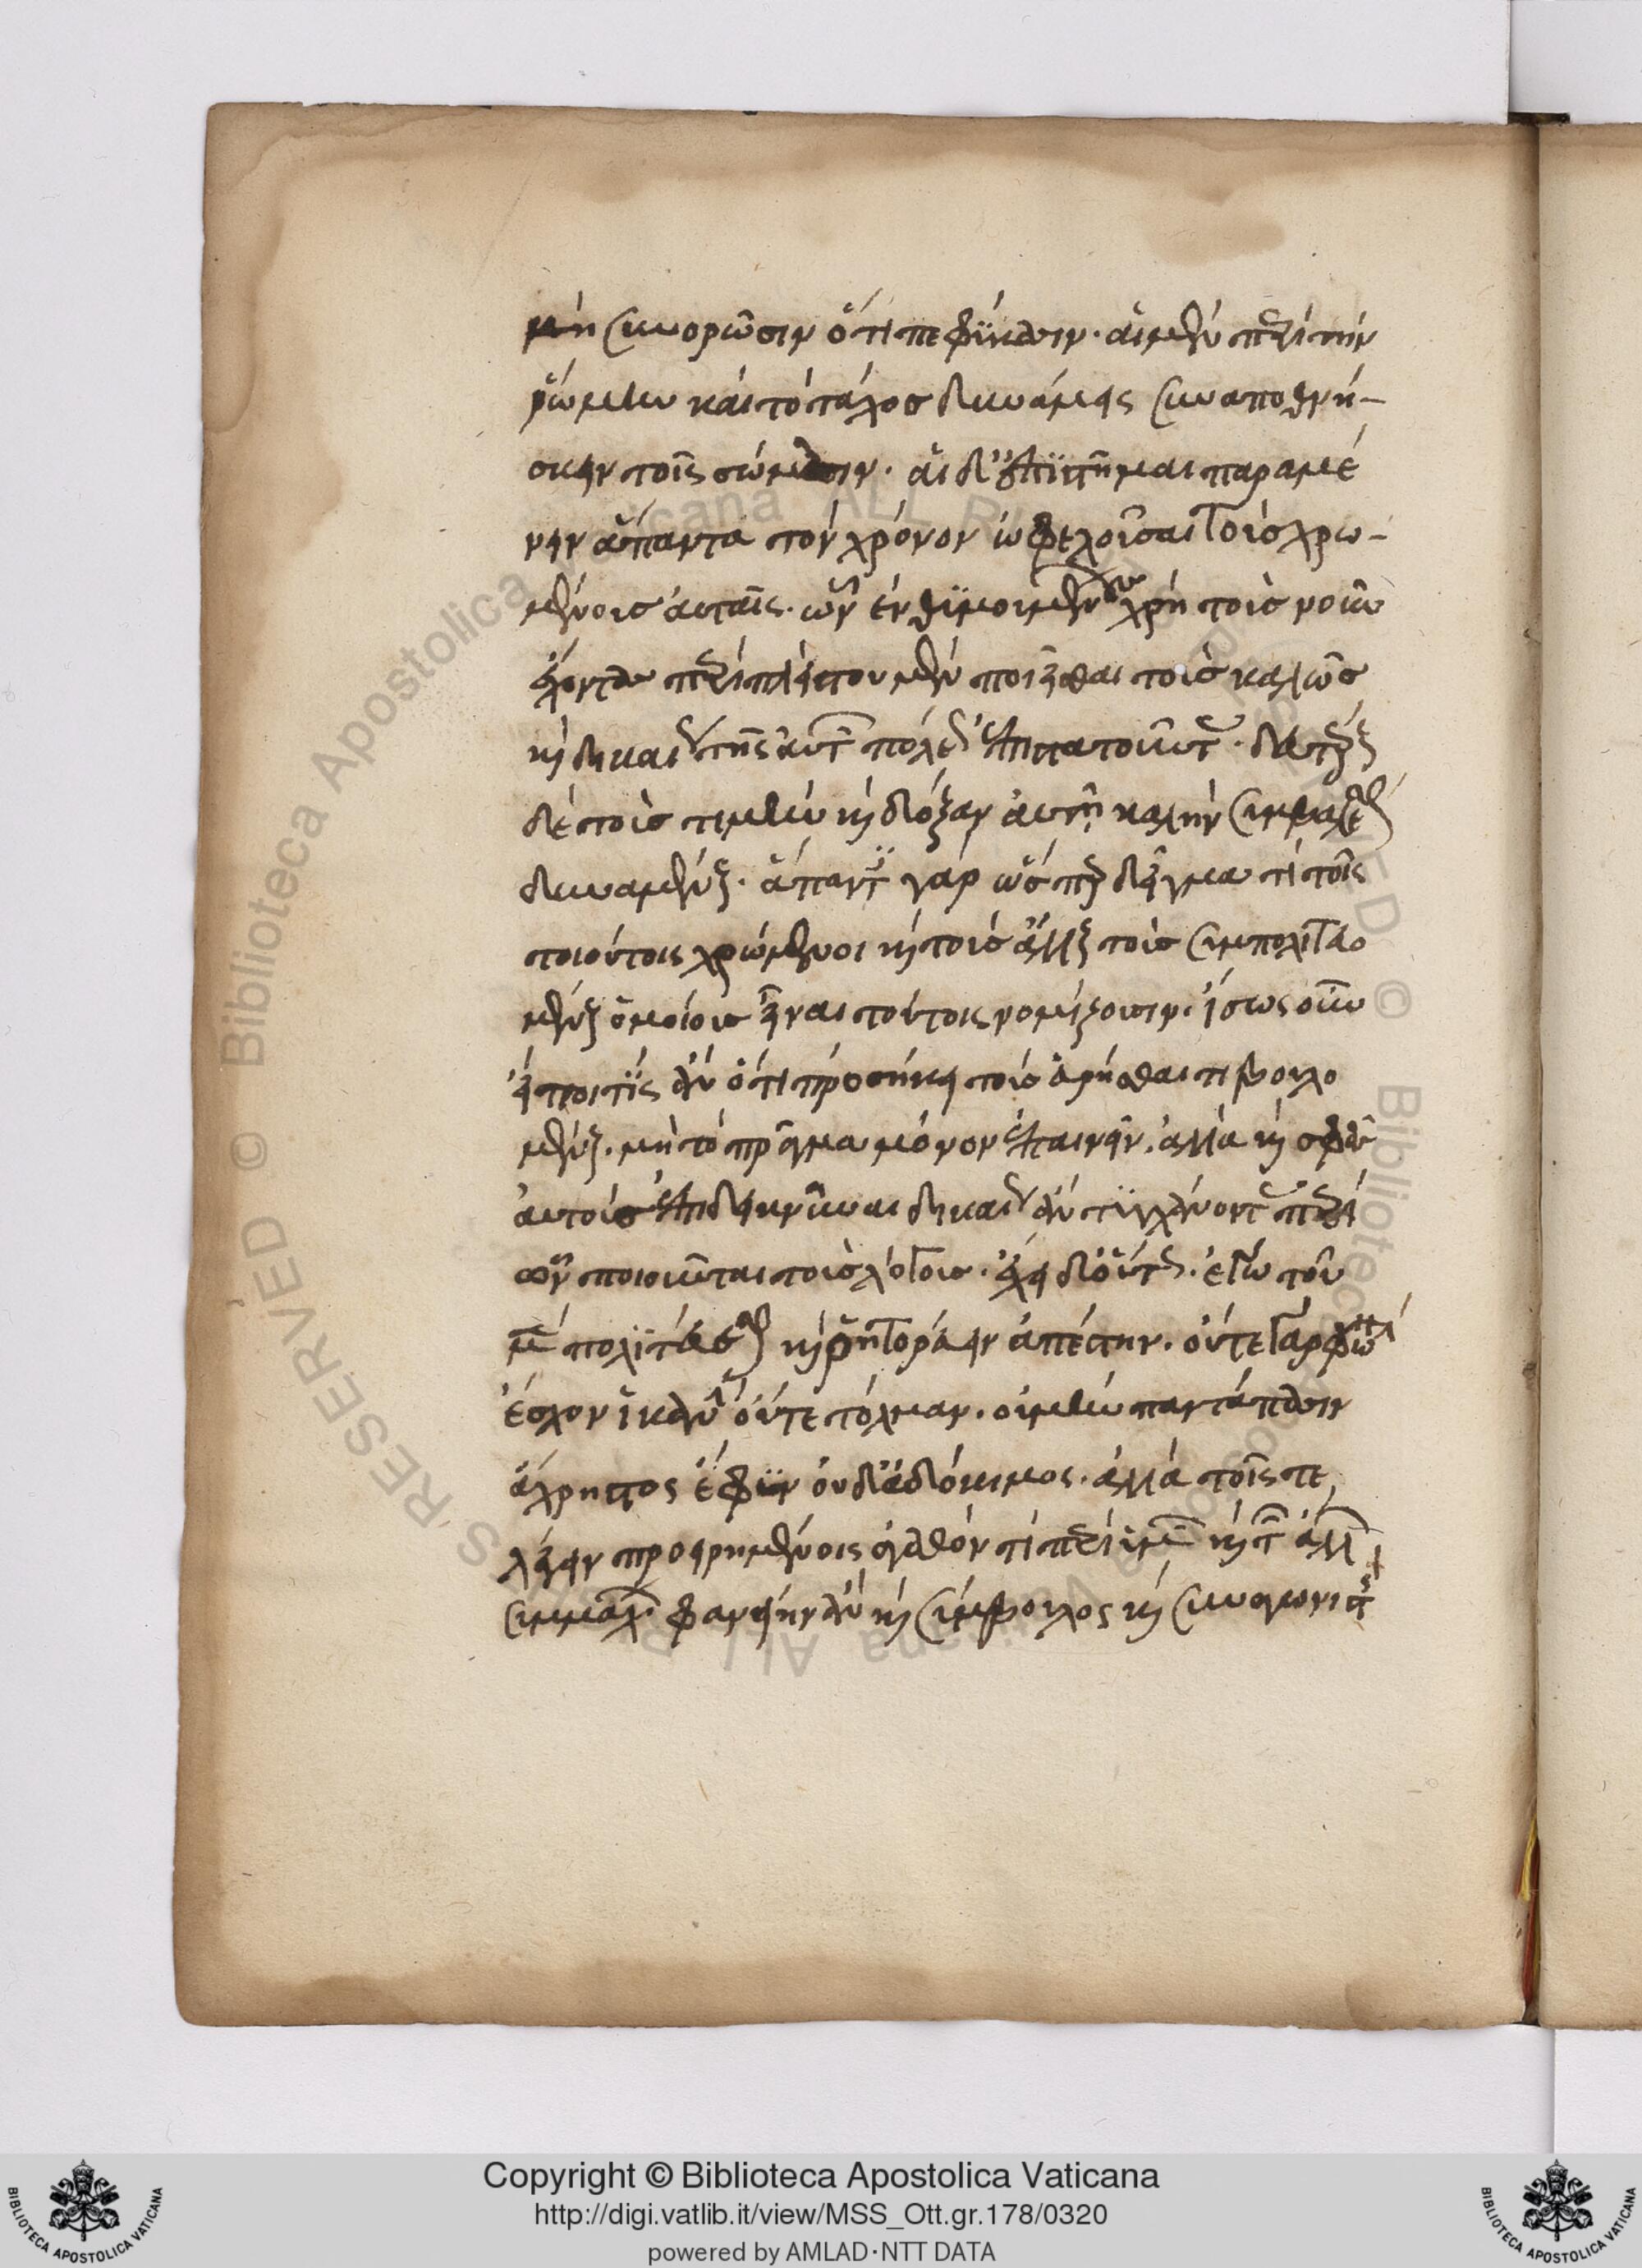 μὴ συνορῶσιν ὅτι πεφύκασιν. αἱ μὲν περὶ τὴν
ῥώμην καὶ τὸ τάχος δυνάμεις συναποθνή-
σκειν τοῖς σώμασιν. αἱ δ' ἐπιστῆμαι παραμέ
νειν ἅπαντα τὸν χρόνον ὠφελοῦσαι τοὺς χρω-
μένους αὐταῖς. ὧν ἐνθυμουμένους χρὴ τοὺς νοῦν
ἔχοντας περὶ πλείστου μὲν ποιεῖσθαι τοὺς καλῶς
καὶ δικαίως τῆς αὑτῶν πόλεως ἐπιστατοῦντας. δευτέρους
δὲ τοὺς τιμὴν καὶ δόξαν αὐτῇ καλὴν συμβαλέσθαι
δυναμένους. ἅπαντες γὰρ ὥσπερ δείγματι τοῖς
τοιούτοις χρώμενοι καὶ τοὺς ἄλλους τοὺς συμπολιτευο
μένους ὁμοίους εἶναι τούτοις νομίζουσιν. ἴσως οὖν
εἴποι τίς ἂν ὅτι προσήκει τοὺς εὑρῆσθαι τι βουλο
μένους. μὴ τὸ πρᾶγμα μόνον ἐπαινεῖν. ἀλλὰ καὶ σφᾶς
αὐτοὺς ἐπιδεικνύναι δικαίως ἂν τυγχάνοντας περὶ
ὧν ποιοῦνται τοὺς λόγους. ἔχει δ' οὕτως. ἐγὼ τοῦ
μὲν πολιτεύεσθαι καὶ ῥητορεύειν ἀπέστην. οὔτε γὰρ φωνὴν
ἔσχον ἱκανὴν οὔτε τόλμαν. οὐ μὴν παντάπασιν
ἄχρηστος ἔφυν οὐδ' ἀδόκιμος. ἀλλὰ τοῖς τε
λέγειν προῃρημένοις ἀγαθόν τι περὶ ὑμῶν καὶ τῶν ἄλλων
συμμάχων φανείην ἂν καὶ σύμβουλος καὶ συναγωνιστὴς